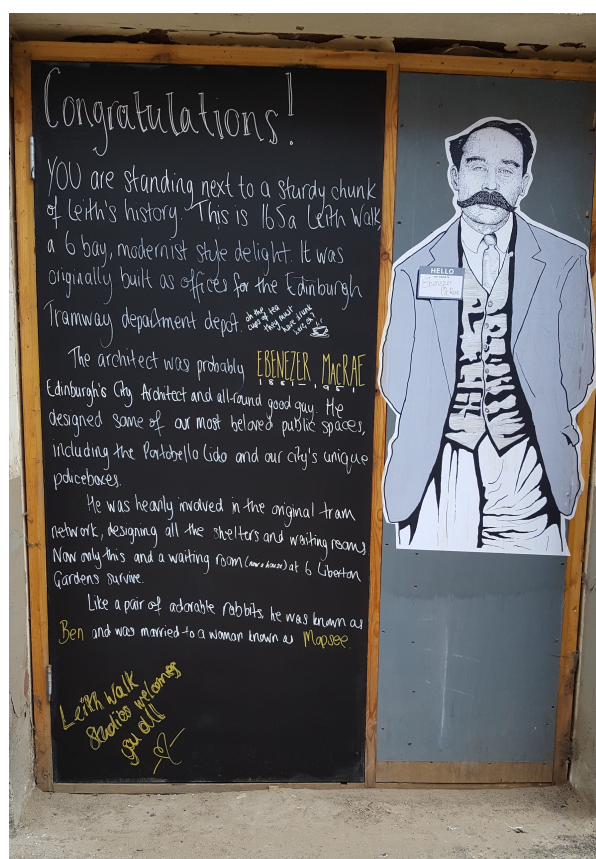 Congratulations!
YOU are standing next to a sturdy chunk
of Leith's history. This is 165a Leith Walk,
a 6 bay, modernist style delight. It was
originally built as offices for the Edinburgh
Tramway department depot.
oh the
cups of tea
they must
have drunk
here, eh?
The architect was probably EBENEZER MACRAE
1881-1951
Edinburgh's City Architect and all-round good guy. He
designed some of our most beloved public spaces,
including the Portobello Lido and our city's unique
policeboxes.
He was heavily involved in the original tram
network, designing all the shelters and waiting rooms.
Now only this and a waiting room (now a house) at 6 Liberton
Gardens survive.
Like a pair of adorable rabbits, he was known as
Ben and was married to a woman known as Mopsee.
Leith Walk
Studios welcomes
you all
HELLO
Ebenezer
McRae